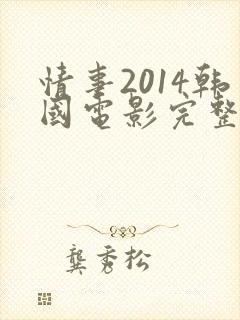 情事2014韩
國電影完整
龔秀松